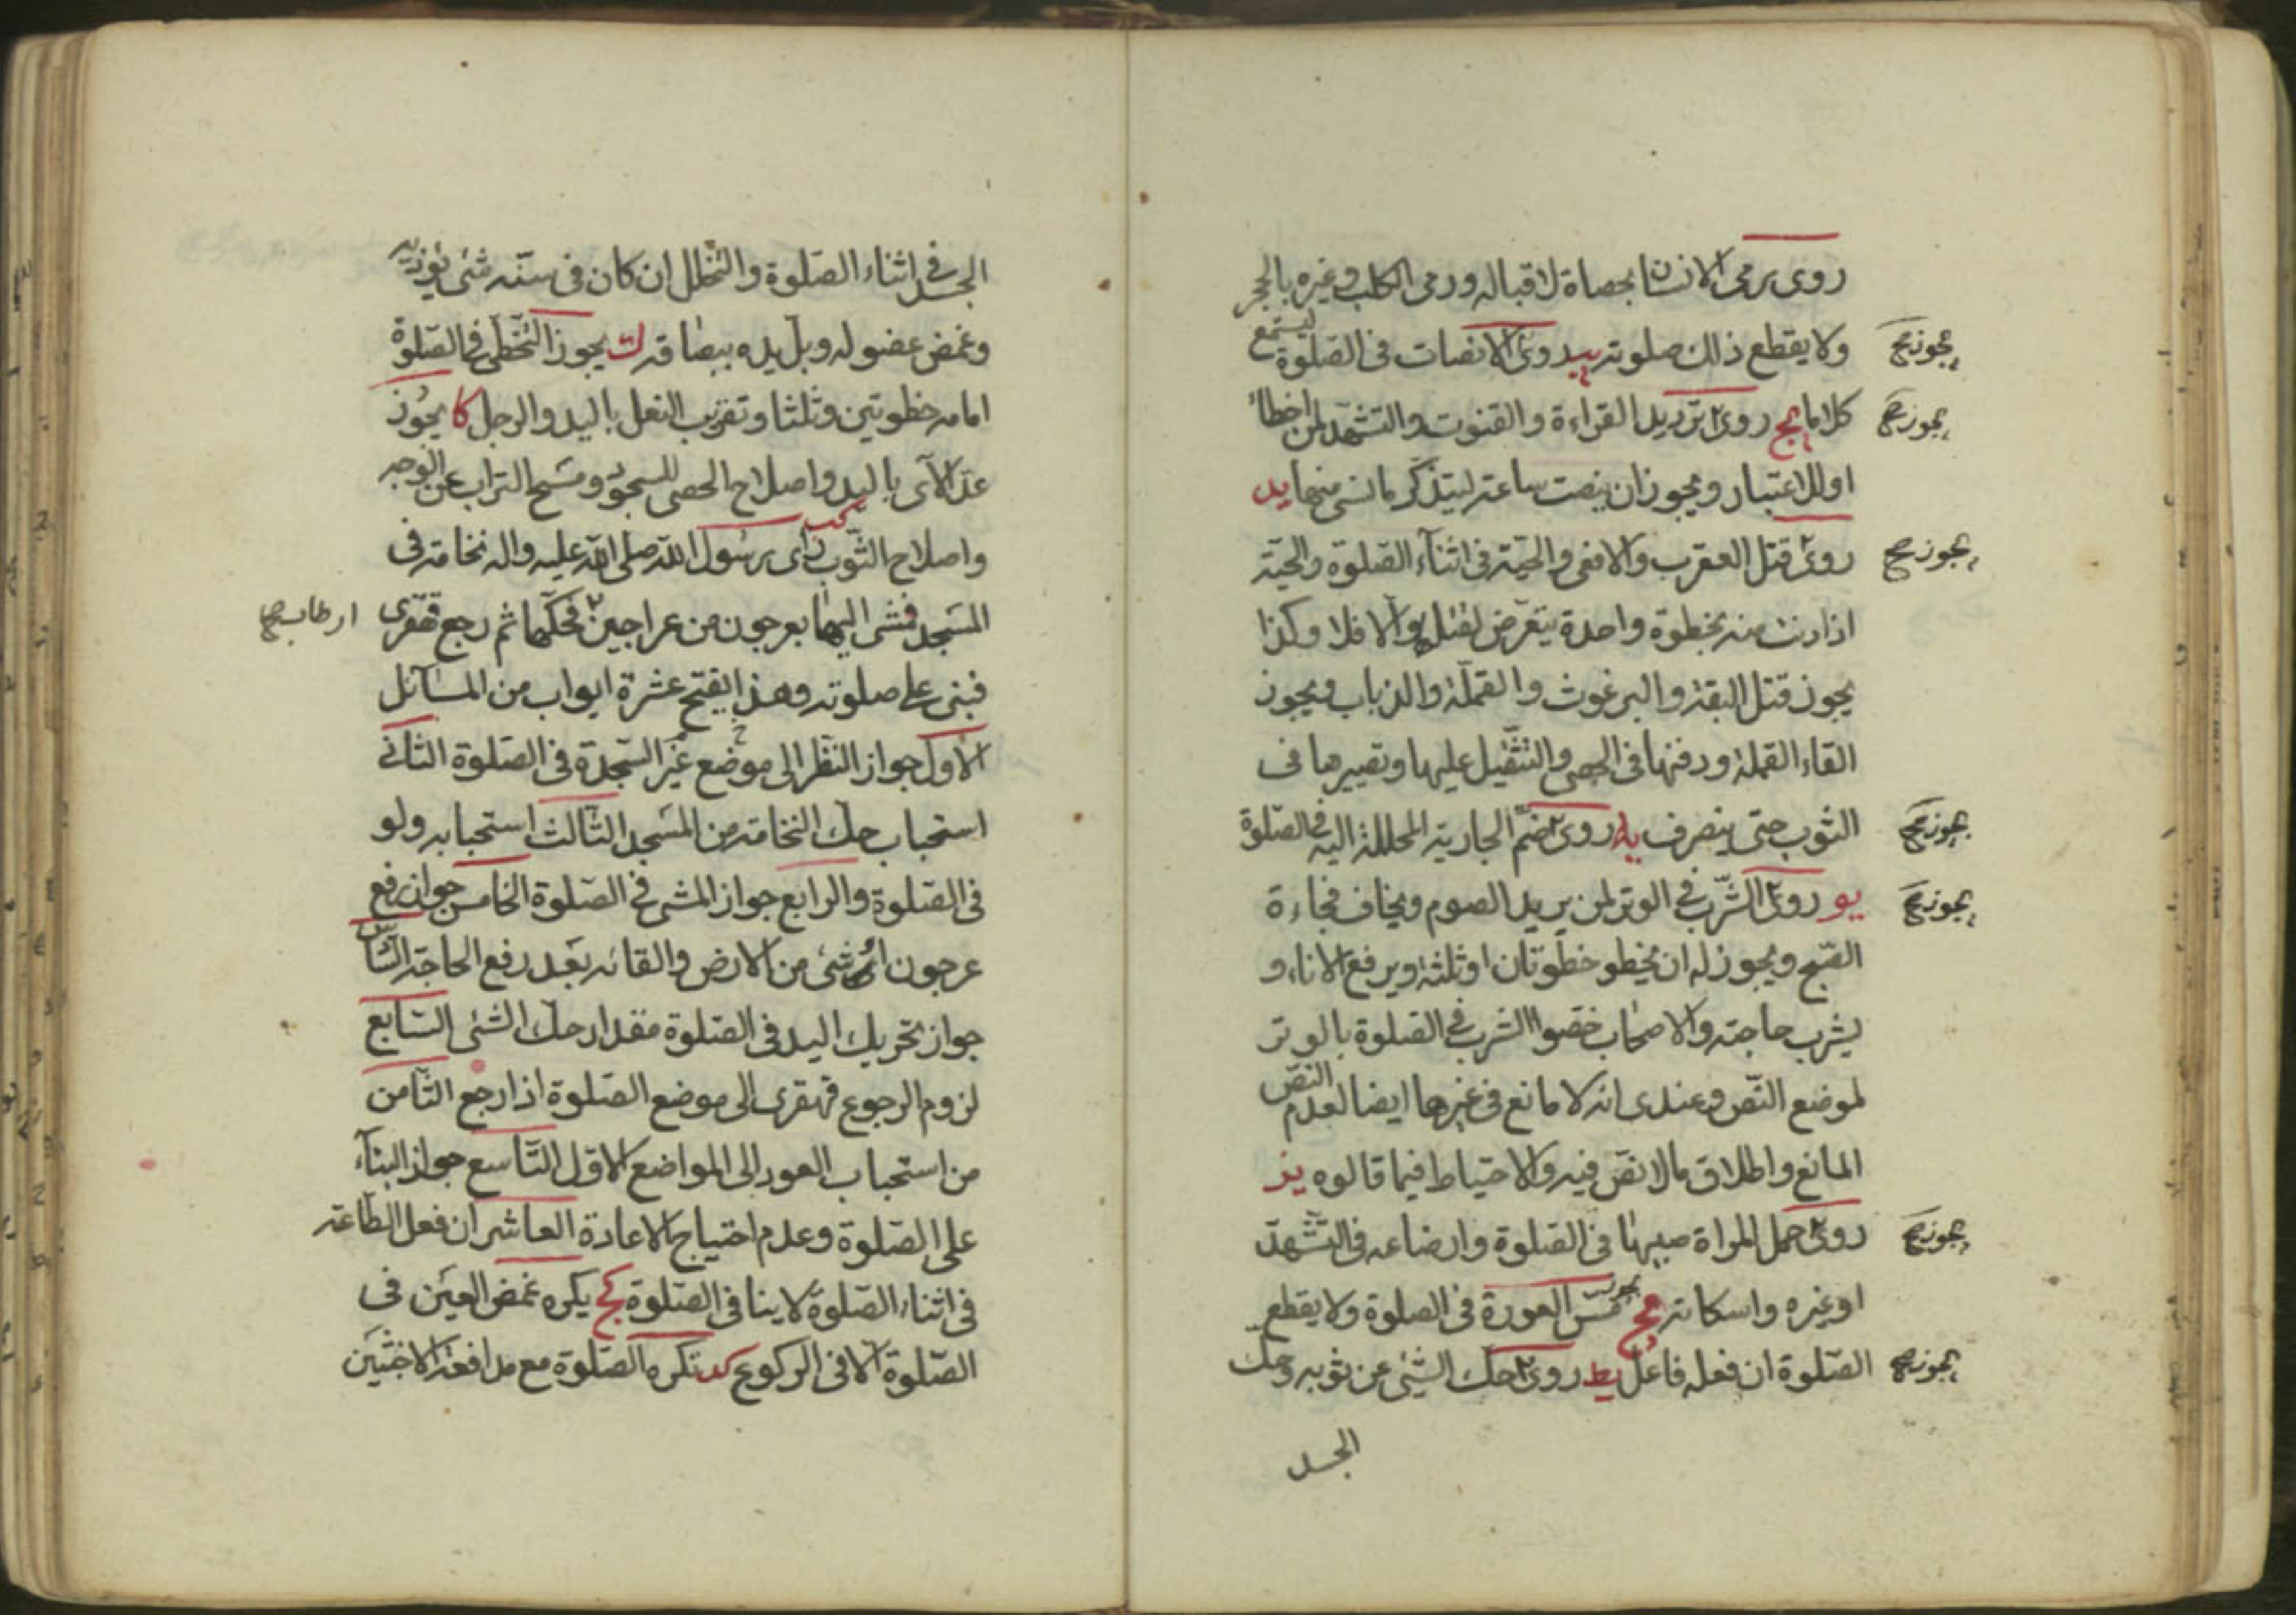 روى يرمى الانسان بحصاة لاقباله ورمى الكلب وغيره بالحجر
يجوز صح
ولا يقطع ذلك صلوته يب روى الانصات فى الصلوة ليستمع
يجوز صح
كلاما يج روى ترديد القراءة والقنوت والتشهد لمن اخطأ
او للاعتبار ويجوز ان ينصت ساعة ليتذكر ما نسى منها يد
يجوز صح
روى قتل العقرب والافعى والحية فى اثناء الصلوة والحية
اذا دنت منه بخطوة واحدة يتعرض لقتلها والا فلا وكذا
يجوز قتل البقة والبرغوث والقملة والذباب ويجوز
القاء القملة ودفنها فى الحصى والتثقيل عليها وتصييرها فى
يجوز صح
الثوب حتى ينصرف يه روى ضم الجارية المحللة اليه فى الصلوة
يجوز صح
يو روى الشرب فى الوتر لمن يريد الصوم ويخاف فجاءة
الصبح ويجوز له ان يخطو خطوتان او ثلثة ويرفع الاناء و
يشرب حاجته والاصحاب خصوا الشرب فى الصلوة بالوتر
لموضع النص وعندى انه لا مانع فى غيرها ايضا لعدم النص
المانع واطلاق ما لا نص فيه والاحتياط فيما قالوه يز
يجوز صح
روى حمل المراة صبيها فى الصلوة وارضاعه فى التشهد
او غيره واسكاته يح يجوز مس العورة فى الصلوة ولا يقطع
يجوز صح
الصلوة ان فعله فاعل يط روى حك الشئ عن ثوبه وحك
الجسد
الجسد فى اثناء الصلوة والتخلل ان كان فى سنه شئ يؤذيه
وغمض عضو له وبل يده ببصاقه ك يجوز التخطى فى الصلوة
امامه خطوتين وثلثا وتقريب النعل باليد والرجل كا يجوز
عد الآى باليد واصلاح الحصى للسجود ومسح التراب عن الوجه
واصلاح الثوب كب راى رسول الله صلى الله عليه واله نخامة فى
المسجد فمشى اليها بعرجون من عراجين فحكها ثم رجع قهقرى
فبنى على صلوته وهذا يفتح عشرة ابواب من المسائل
الاول جواز النظر الى موضع غير السجدة فى الصلوة الثانى
استحباب حك النخامة من المسجد الثالث استحبابه ولو
فى الصلوة والرابع جواز المشى فى الصلوة الخامس جواز رفع
عرجون شئ من الارض والقائه بعد رفع الحاجة السادس
جواز تحريك اليد فى الصلوة مقدار حك الشئ السابع
لزوم الرجوع قهقرى الى موضع الصلوة اذا رجع الثامن
من استحباب العود الى المواضع الاول التاسع جواز البناء
على الصلوة وعدم احتياج الاعادة العاشر ان فعل الطاعة
فى اثناء الصلوة لا ينافى الصلوة كج يكره غمض العين فى
الصلوة الا فى الركوع كد تكره الصلوة مع مدافعة الاخبثين